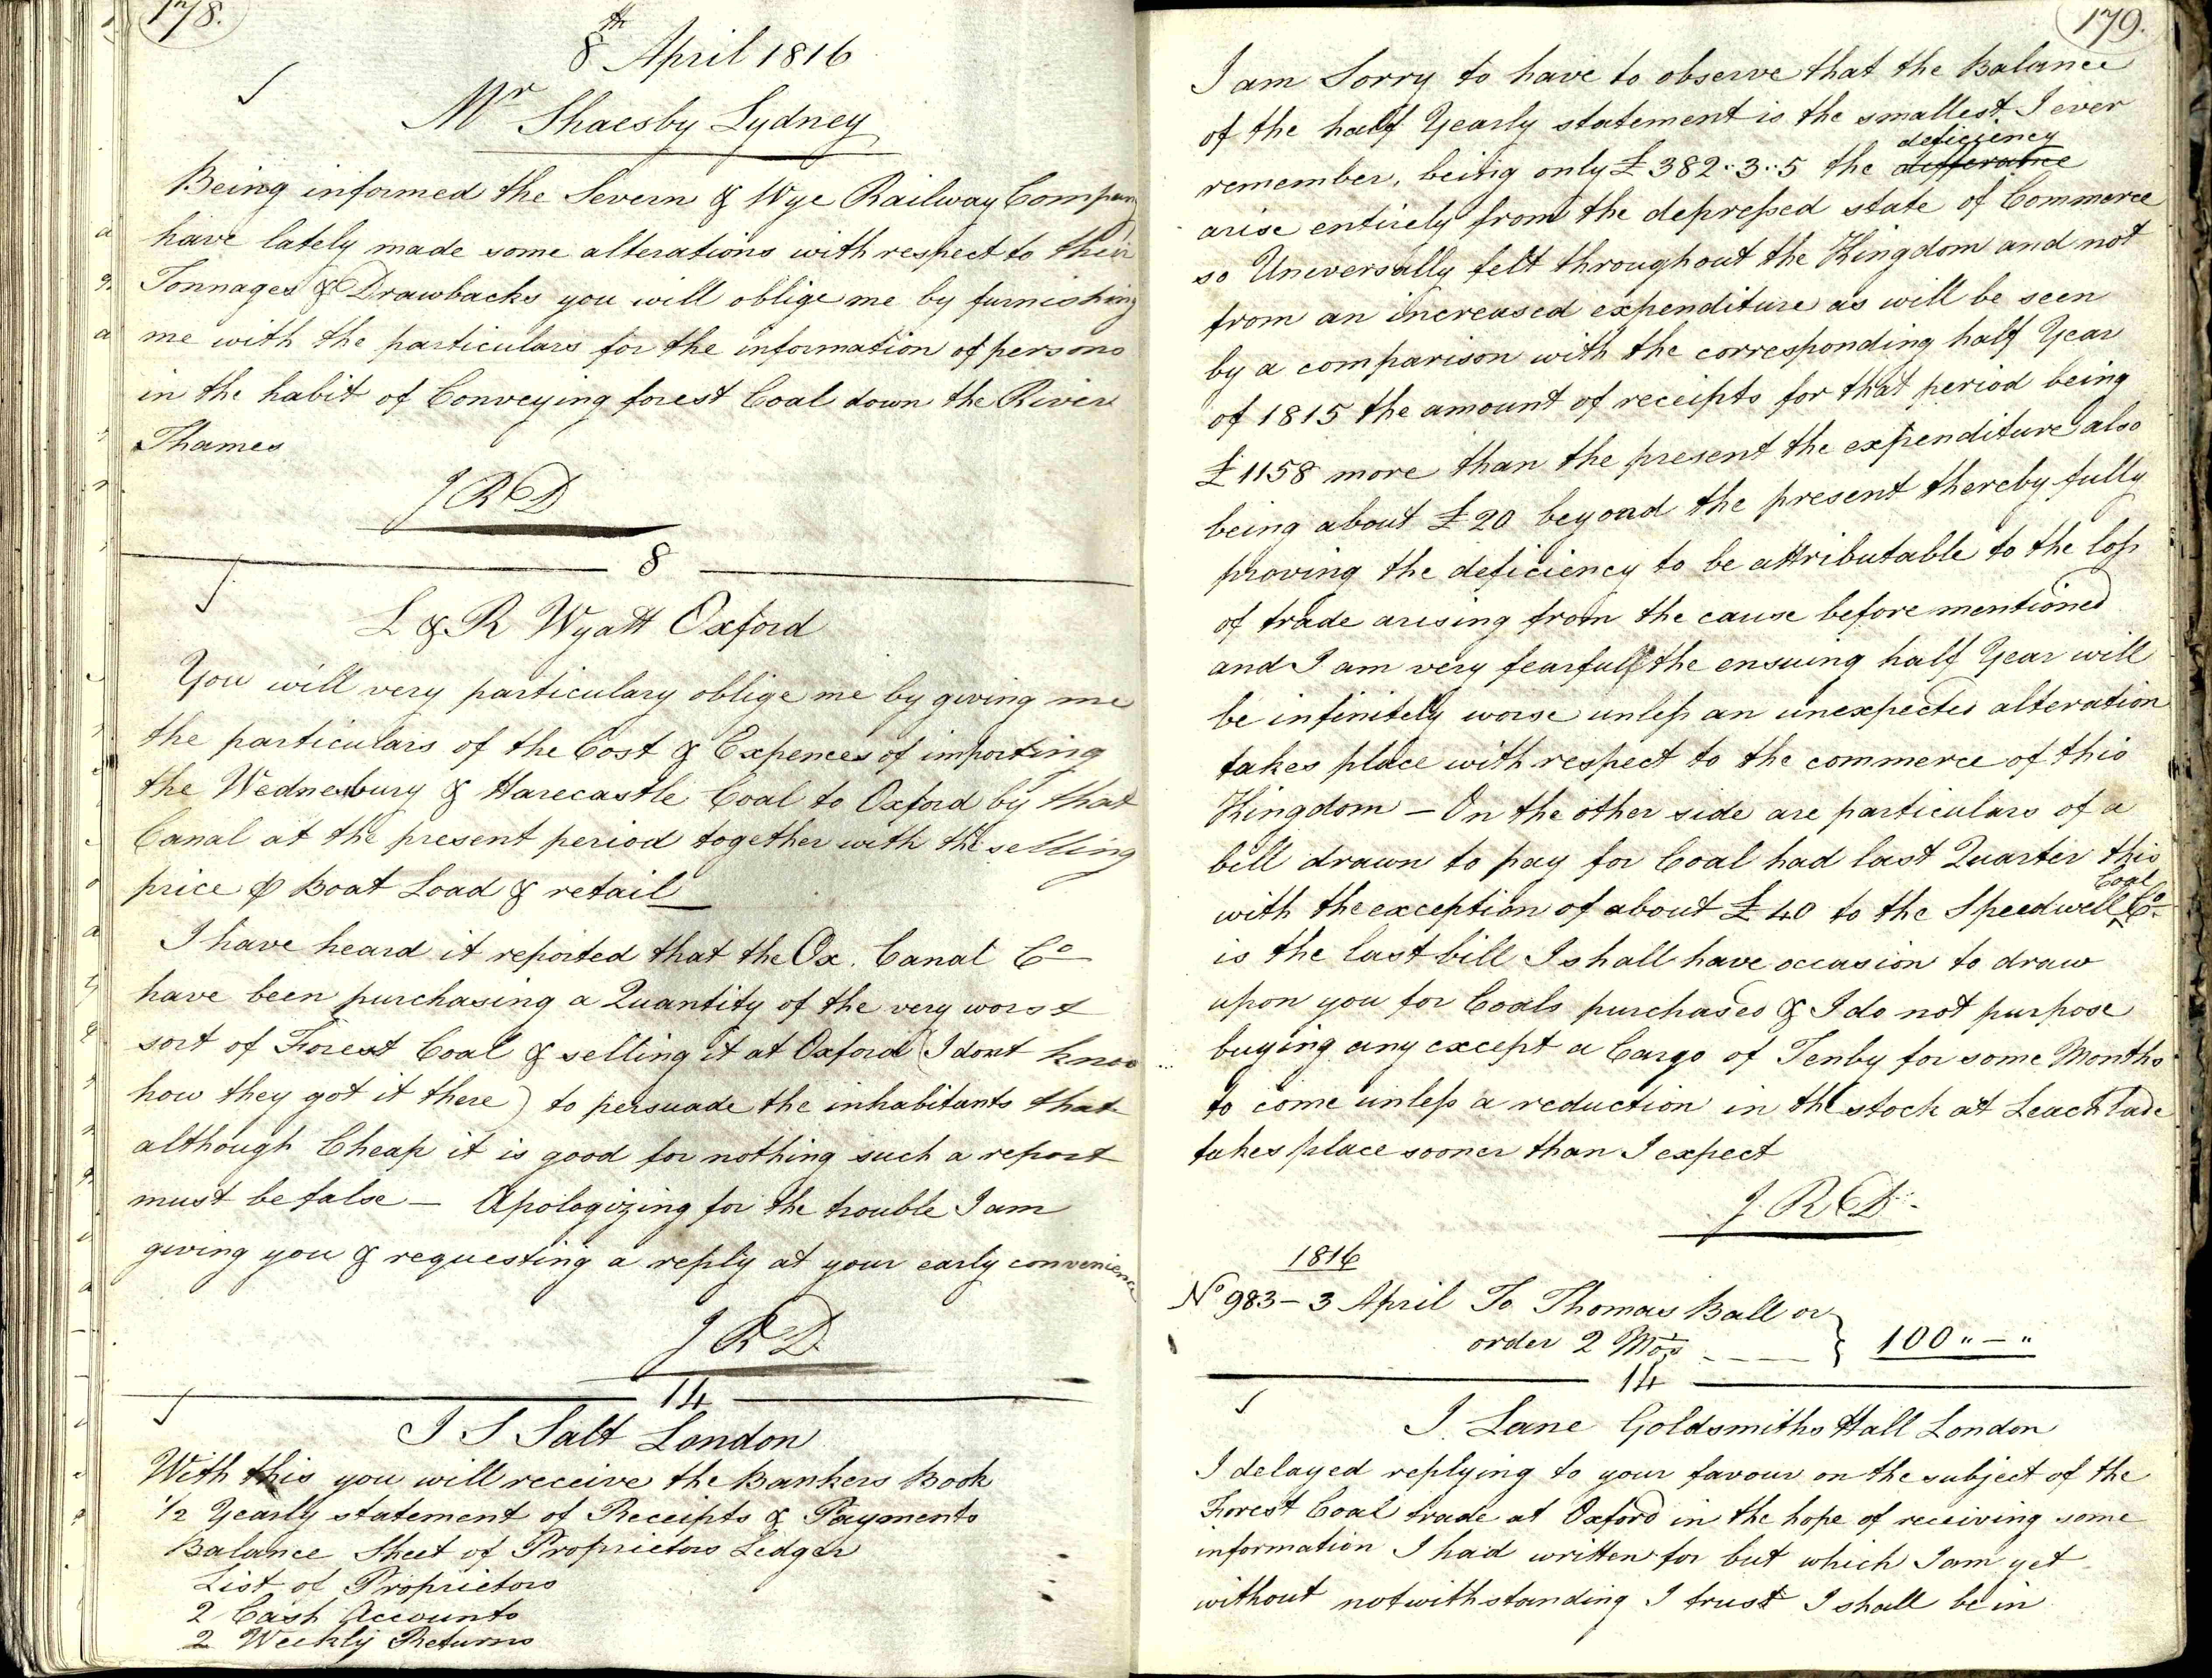 178.
8th April 1816
Mr Shaesby Lydney
Being informed the Severn & Wye Railway Company
have lately made some alterations with respect to their
Tonnages & Drawbacks you will oblige me by furnishing
me with the particulars for the information of persons
in the habit of Conveying forest Coal down the River
Thames
J R D
8
L & R Wyatt Oxford
You will very particulary oblige me by giving me
the particulars of the Cost & Expences of importing
the Wednesbury & Harecastle Coal to Oxford by that
Canal at the present period together with the selling
price ⅌ Boat Load & retail
I have heard it reported that the Ox. Canal Co
have been purchasing a Quantity of the very worst
sort of Forest Coal & selling it at Oxford (I dont know
how they got it there) to persuade the inhabitants that
although Cheap it is good for nothing such a report
must be false — Apologizing for the trouble I am
giving you & requesting a reply at your early convenience
J R D
14
J S Salt London
With this you will receive the Bankers Book
1/2 Yearly statement of Receipts & Payments
Balance Sheet of Proprietors Ledger
List of Proprietors
2 Cash Accounts
2 Weekly Returns
179.
I am Sorry to have to observe that the Balance
of the half Yearly statement is the smallest I ever
deficiency
remember, being only £382..3..5 the difference
arise entirely from the depressed state of Commerce
so Universally felt throughout the Kingdom and not
from an increased expenditure as will be seen
by a comparison with the corresponding half Year
of 1815 the amount of receipts for that period being
£1158 more than the present the expenditure also
being about £20 beyond the present thereby fully
proving the deficiency to be attributable to the loss
of trade arising from the cause before mentioned
and I am very fearful the ensuing half Year will
be infinitely worse unless an unexpected alteration
takes place with respect to the commerce of this
Kingdom — On the other side are particulars of a
bill drawn to pay for Coal had last Quarter this
Coal
with the exception of about £40 to the Speedwell Co
is the last bill I shall have occasion to draw
upon you for Coals purchased & I do not purpose
buying any except a Cargo of Tenby for some Months
to come unless a reduction in the stock at Leachlade
takes place sooner than I expect
J. R D
1816
No 983 — 3 April To Thomas Ball or
order 2 Mos } 100 " — "
14
J. Lane Goldsmiths Hall London
I delayed replying to your favour on the subject of the
Forest Coal trade at Oxford in the hope of receiving some
information I had written for but which I am yet
without notwithstanding I trust I shall be in